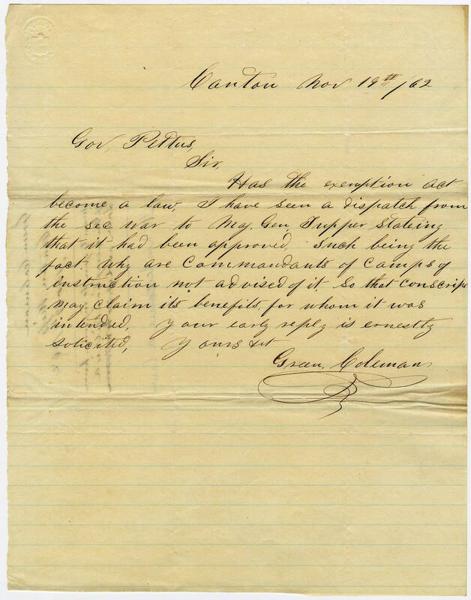 Canton Nov 19th/62
Gov Pettus,
Sir,
Has the exemption act
become a law, I have seen a dispatch from
the Sec War to Maj. Gen Tupper Stateing
that it had been approved. Such being the
fact. Why are Commandants of Camps of
instruction not advised of it So that Conscrips
may claim its benefits, for whom it was
intended, Your early reply is ernestly
solicited, Yours &t
Green, Coleman